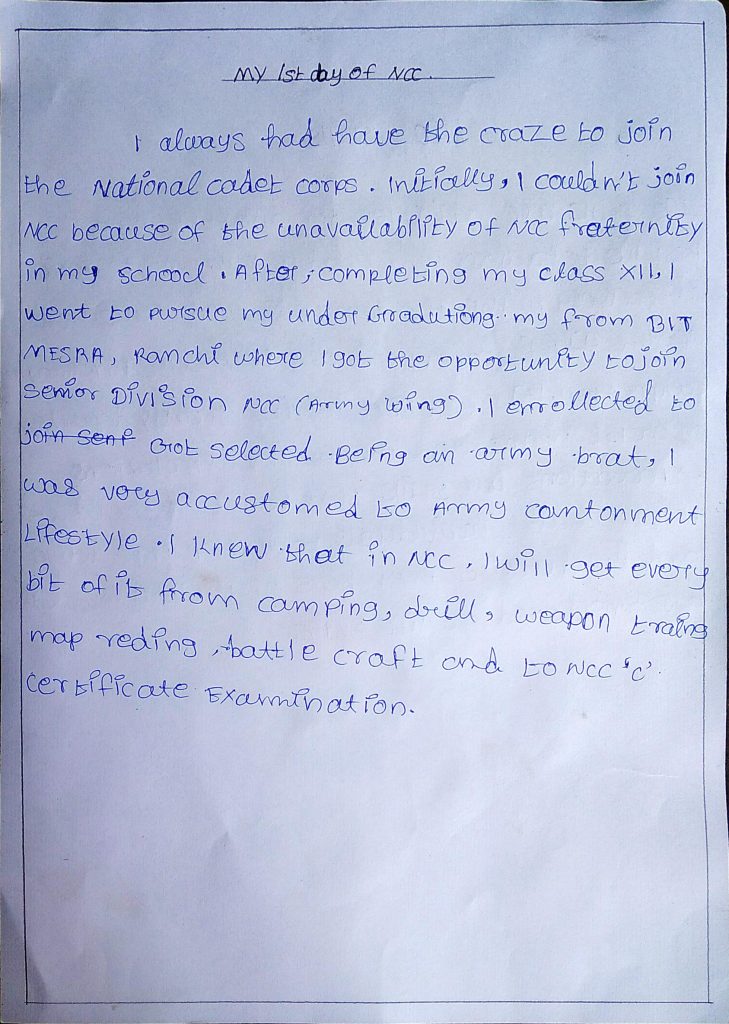 My 1st day of NCC.
I always had have the craze to join
the National cadet corps. Initially, I couldn't join
NCC because of the unavailability of NCC fraternity
in my school. After, completing my class XII, I
went to pursue my under Gradutiong my from BIT
MESRA, Ranchi where I got the opportunity to join
Senior Division NCC (Army wing). I enrollected to
join seni Got selected. Being an army brat, I
was very accustomed to Army cantonment
Lifestyle. I knew that in NCC, I will get every
bit of it from camping, drill, weapon traing
map reding, battle craft and to NCC 'C'.
Certificate Examination.